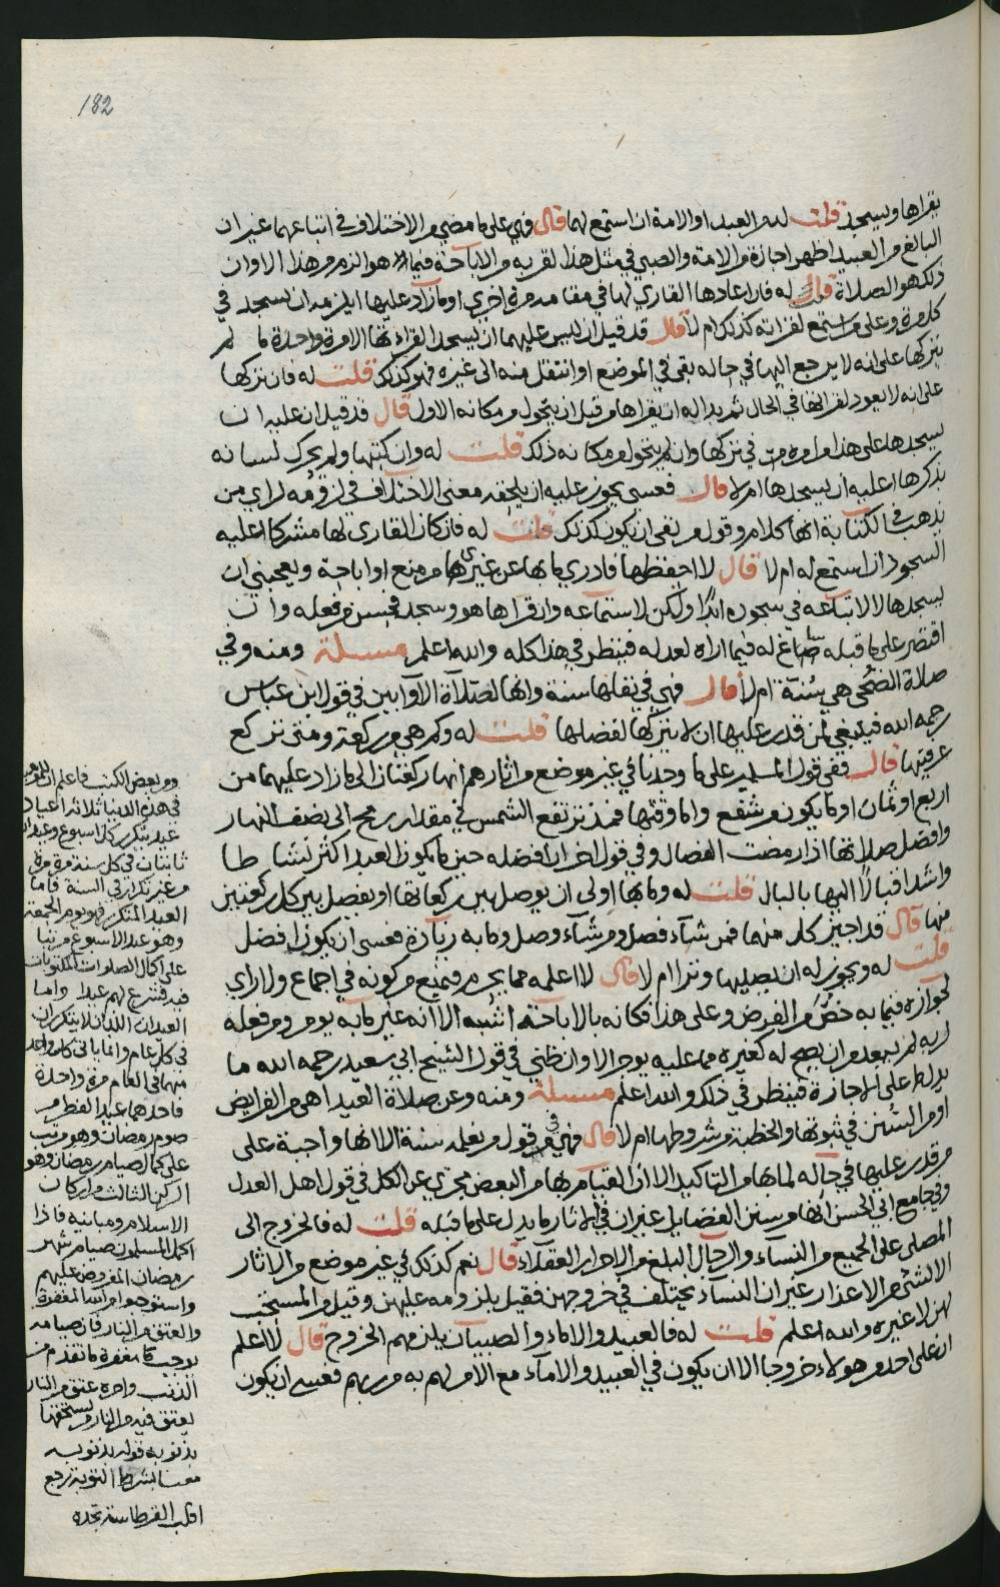 182
يقراها ويسجد قلت له والعبد او الامة ان استمع لها قال فهي على ما مضى من الاختلاف في اتباعهما غير ان
البالغ من العبيد اظهر اجازة من الامة والصبي في مثل هذا لقربه من الاباحة فيما هو الزم من هذا الاوان
ذلك هو الصلاة قلت له فان اعادها القاري لها في مقامه مرة اخرى او ما زاد عليها ايلزمه ان يسجد في
كل مرة وعلى من استمع لقراته كذلك ام لا قال قد قيل ان ليس عليهما ان يسجدا لقراءتها الا مرة واحدة ما لم
يتركها على انه لا يرجع اليها في حاله بقى في الموضع او انتقل منه الى غيره فهو كذلك قلت له فان تركها
على انه لا يعود لقرانها في الحال ثم بدا له ان يقراها من قبل ان يتحول من مكانه الاول قال قد قيل ان عليه ان
يسجدها على هذا من امره في تركها وان لم يتحول من مكانه ذلك قلت له وان كتبها ولم يحرك لسانه
بذكرها اعليه ان يسجدها ام لا قال فعسى يجوز عليه ان يلحقه معنى الاختلاف في لزومه لراي من
يذهب في الكتابة انها كلام وقول من نفى ان يكون كذلك قلت له فان كان القاري لها مشركا اعليه
السجود ان استمع له ام لا قال لا احفظها فادري ما بها عن غيري من منع او اباحة ويعجبني ان
يسجدها لا لاتباعه في سجوده ابدا ولكن لاستماعه وان قراها هو وسجد فحسن من فعله وان
اقتصر على ما قبله ساغ له فيما اراه لعدله فينظر في هذا كله والله اعلم مسئلة ومنه وفي
صلاة الضحى هي سنة ام لا قال فهي في نفلها سنة وانها لصلاة الاوابين في قول ابن عباس
رحمه الله فينبغي لمن قدر عليها ان لا يتركها لفضلها قلت له وكم هي من ركعة ومتى تركع
عرفنيها قال ففي قول المسلمين على ما وجدنا في غير موضع من اثارهم انها ركعتان الى ما زاد عليهما من
اربع او ثمان او ما يكون من شفع واما وقتها فمذ ترتفع الشمس في مقدار رمح الى نصف النهار
وافضل صلاتها اذا رمضت الفصال وفي قول اخر ان افضله حين ما يكون العبد اكثر نشاطا
واشد اقبالا اليها بالبال قلت له وما بها اولى ان يوصل بين ركعاتها او يفصل بين كل ركعتين
منها قال قد اجيز كل منهما فمن شاء فصل ومن شاء وصل وما به زيادة فعسى ان يكون افضل
قلت له ويجوز له ان يصليها وترا ام لا قال لا اعلمه مما يحرم فيمنع من كونه في اجماع ولا راي
لجوازه فيما به خص من الفرض وعلى هذا فكانه بالاباحة اشبه الا انه غير ما به يومر ومن فعله
لربه لم يبعد من ان يصح له كغيره مما عليه يوجر الا وان ظني في قول الشيخ ابي سعيد رحمه الله ما
يدل على الاجازة فينظر في ذلك والله اعلم مسئلة ومنه وعن صلاة العيد اهي من الفرايض
او من السنن في ثبوتها والخطبة من شروطها ام لا قال فهي في قول من يعلمه سنة الا انها واجبة على
من قدر عليها في حاله لما بها من التاكيد الا ان القيام بها من البعض مجزي عن الكل في قول اهل العدل
وفي جامع ابي الحسن انها من سنن الفضايل غير ان في الاثار ما يدل على ما قبله قلت له فالخروج الى
المصلى على الجميع من النساء والرجال البلغ من الاحرار العقلاء قال نعم كذلك في غير موضع من الاثار
الا لشيء من الاعذار غير ان النساء يختلف في خروجهن فقيل بلزومه عليهن وقيل من المستحب
لهن لا غيره والله اعلم قلت له فالعبيد والاماء والصبيان يلزمهم الخروج قال لا اعلم
ان على احد من هولاء خروجا الا ان يكون في العبيد والاماء مع الامر لهم به من ربهم فعسى ان يكون
ومن بعض الكتب فاعلم ان للمومنين
في هذه الدنيا ثلاثة اعياد
عيد يتكرر كل اسبوع وعيدان
ثابتان في كل سنة مرة مرة
من غير تكرار في السنة فاما
العيد المتكرر فهو يوم الجمعة
وهو عيد الاسبوع مرتبا
على اكمال الصلوات المكتوبات
فيه فشرع لهم عيدا واما
العيدان اللذان لا يتكرران
في كل عام وانما ياتي كل واحد
منهما في العام مرة واحدة
فاحدهما عيد الفطر من
صوم رمضان وهو مرتب
على اكمال صيام رمضان وهو
الركن الثالث من اركان
الاسلام ومبانيه فاذا
اكمل المسلمون صيام شهر
رمضان المفروض عليهم
واستوجبوا من الله المغفرة
والعتق من النار فان صيامه
يوجب مغفرة ما تقدم من
الذنب واخره عتق من النار
يعتق فيه من النار من يستحقها
بذنوبه قوله بذنوبه
معنا بشرط التوبة رجع
اقلب القرطاسة تجده